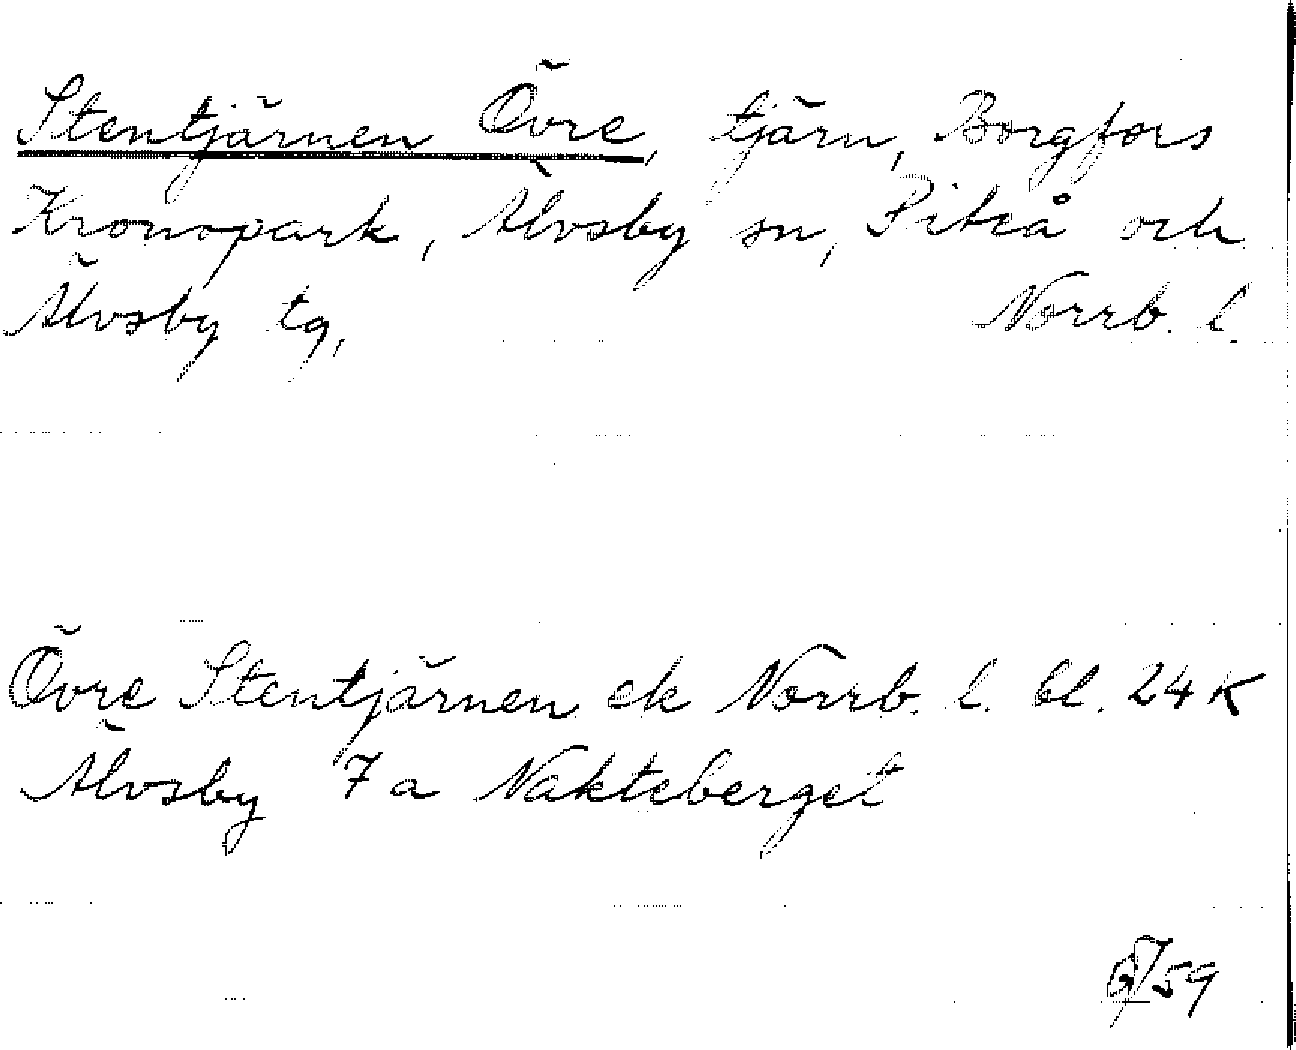 Stentjärnen Övre, tjärn, Borgfors
Kronopark, Älvsby sn, Piteå och
Älvsby tg, Norrb. l.
Övre Stentjärnen ek Norrb. l. bl. 24K
Älvsby 7a Nakteberget
59